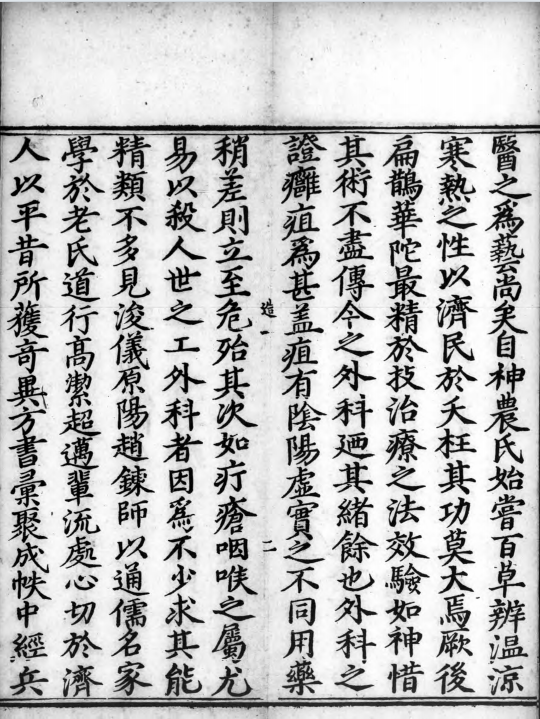 醫之爲藝尚矣自神農氏始嘗百草辨温凉
寒熱之性以濟民於夭枉其功莫大焉厥後
扁鵲華陀最精於技治療之法效驗如神惜
其術不盡傳今之外科廼其緒餘也外科之
證癰疽爲甚盖疽有陰陽虛實之不同用藥
造一
二
稍差則立至危殆其次如疔瘡咽喉之屬尤
易以殺人世之工外科者因爲不少求其能
精類不多見浚儀原陽趙鍊師以通儒名家
學於老氏道行高潔超邁輩流處心切於濟
人以平昔所獲奇異方書彙聚成帙中經兵